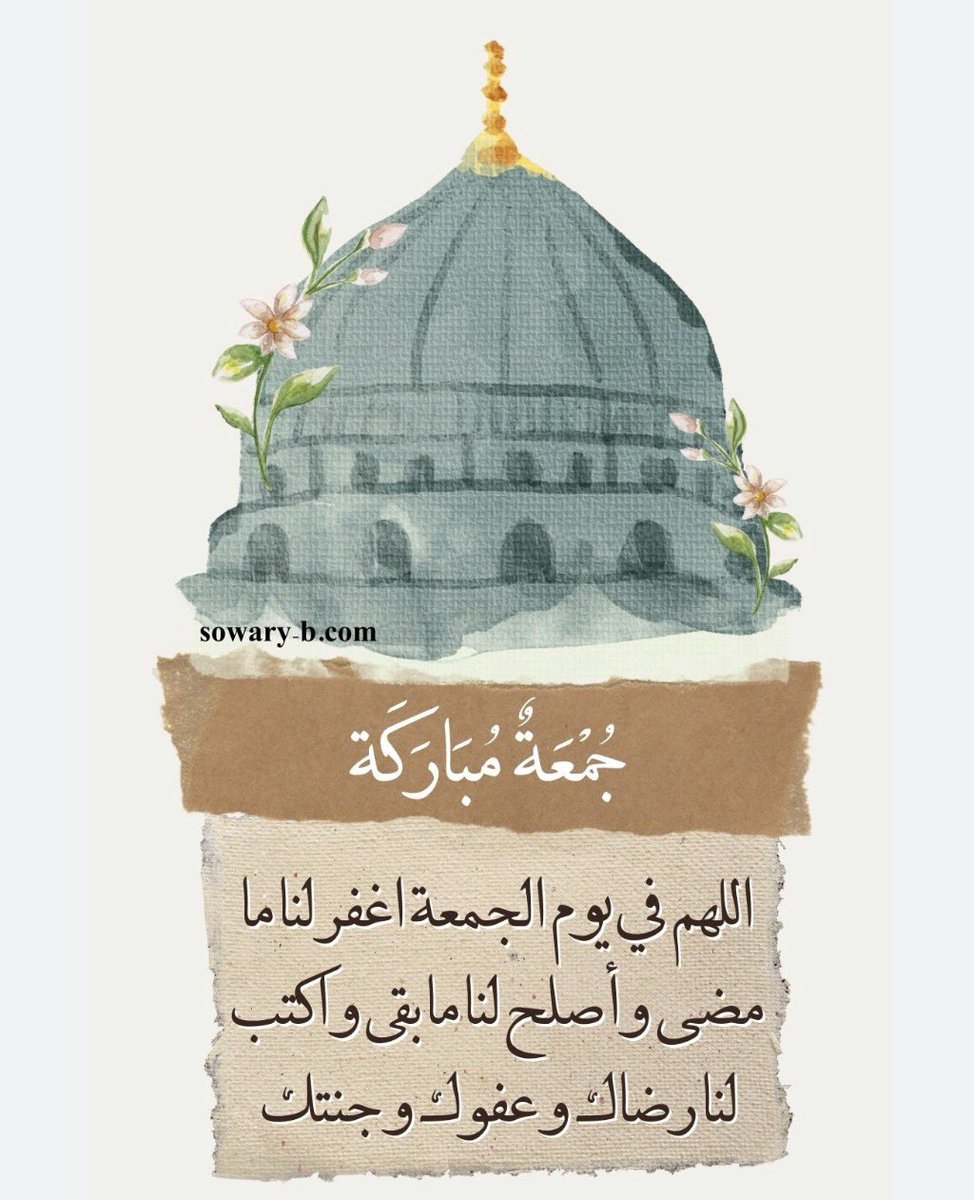 sowary-b.com
جُمْعَةٌ مُبَارَكَة
اللهم في يوم الجمعة اغفر لنا ما
مضى وأصلح لنا ما بقى واكتب
لنا رضاك وعفوك وجنتك